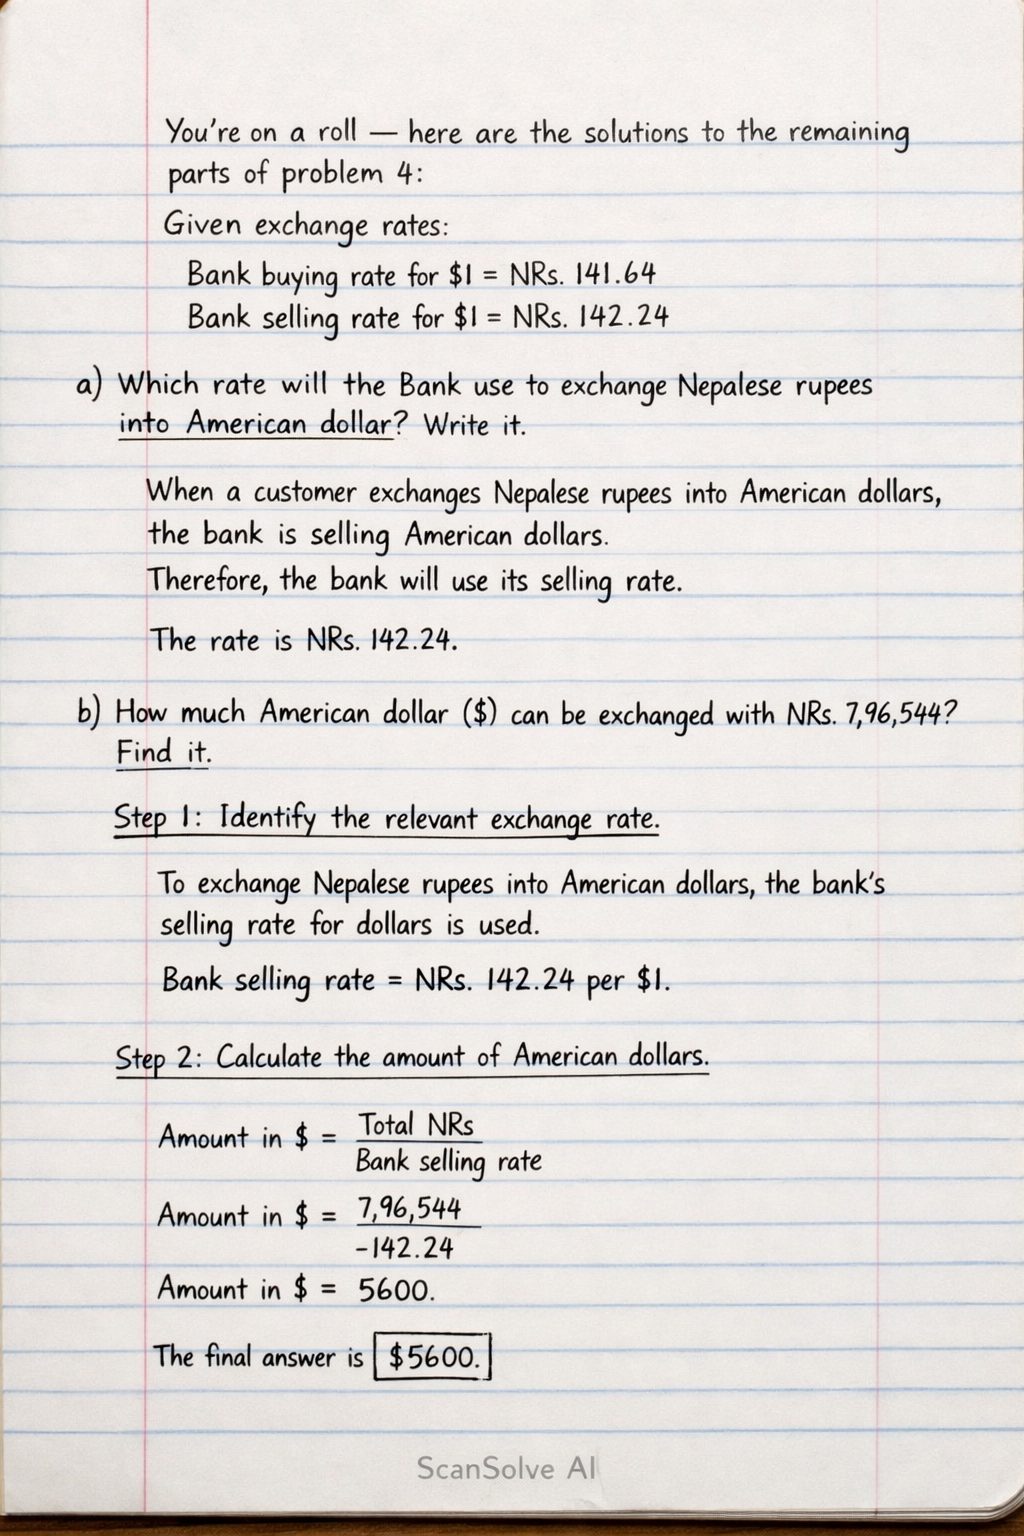 You're on a roll — here are the solutions to the remaining
parts of problem 4:
Given exchange rates:
Bank buying rate for $1 = NRs. 141.64
Bank selling rate for $1 = NRs. 142.24
a) Which rate will the Bank use to exchange Nepalese rupees
into American dollar? Write it.
When a customer exchanges Nepalese rupees into American dollars,
the bank is selling American dollars.
Therefore, the bank will use its selling rate.
The rate is NRs. 142.24.
b) How much American dollar ($) can be exchanged with NRs. 7,96,544?
Find it.
Step 1: Identify the relevant exchange rate.
To exchange Nepalese rupees into American dollars, the bank's
selling rate for dollars is used.
Bank selling rate = NRs. 142.24 per $1.
Step 2: Calculate the amount of American dollars.
Amount in $ = Total NRs
Bank selling rate
Amount in $ = 7,96,544
-142.24
Amount in $ = 5600.
The final answer is $5600.
ScanSolve AI